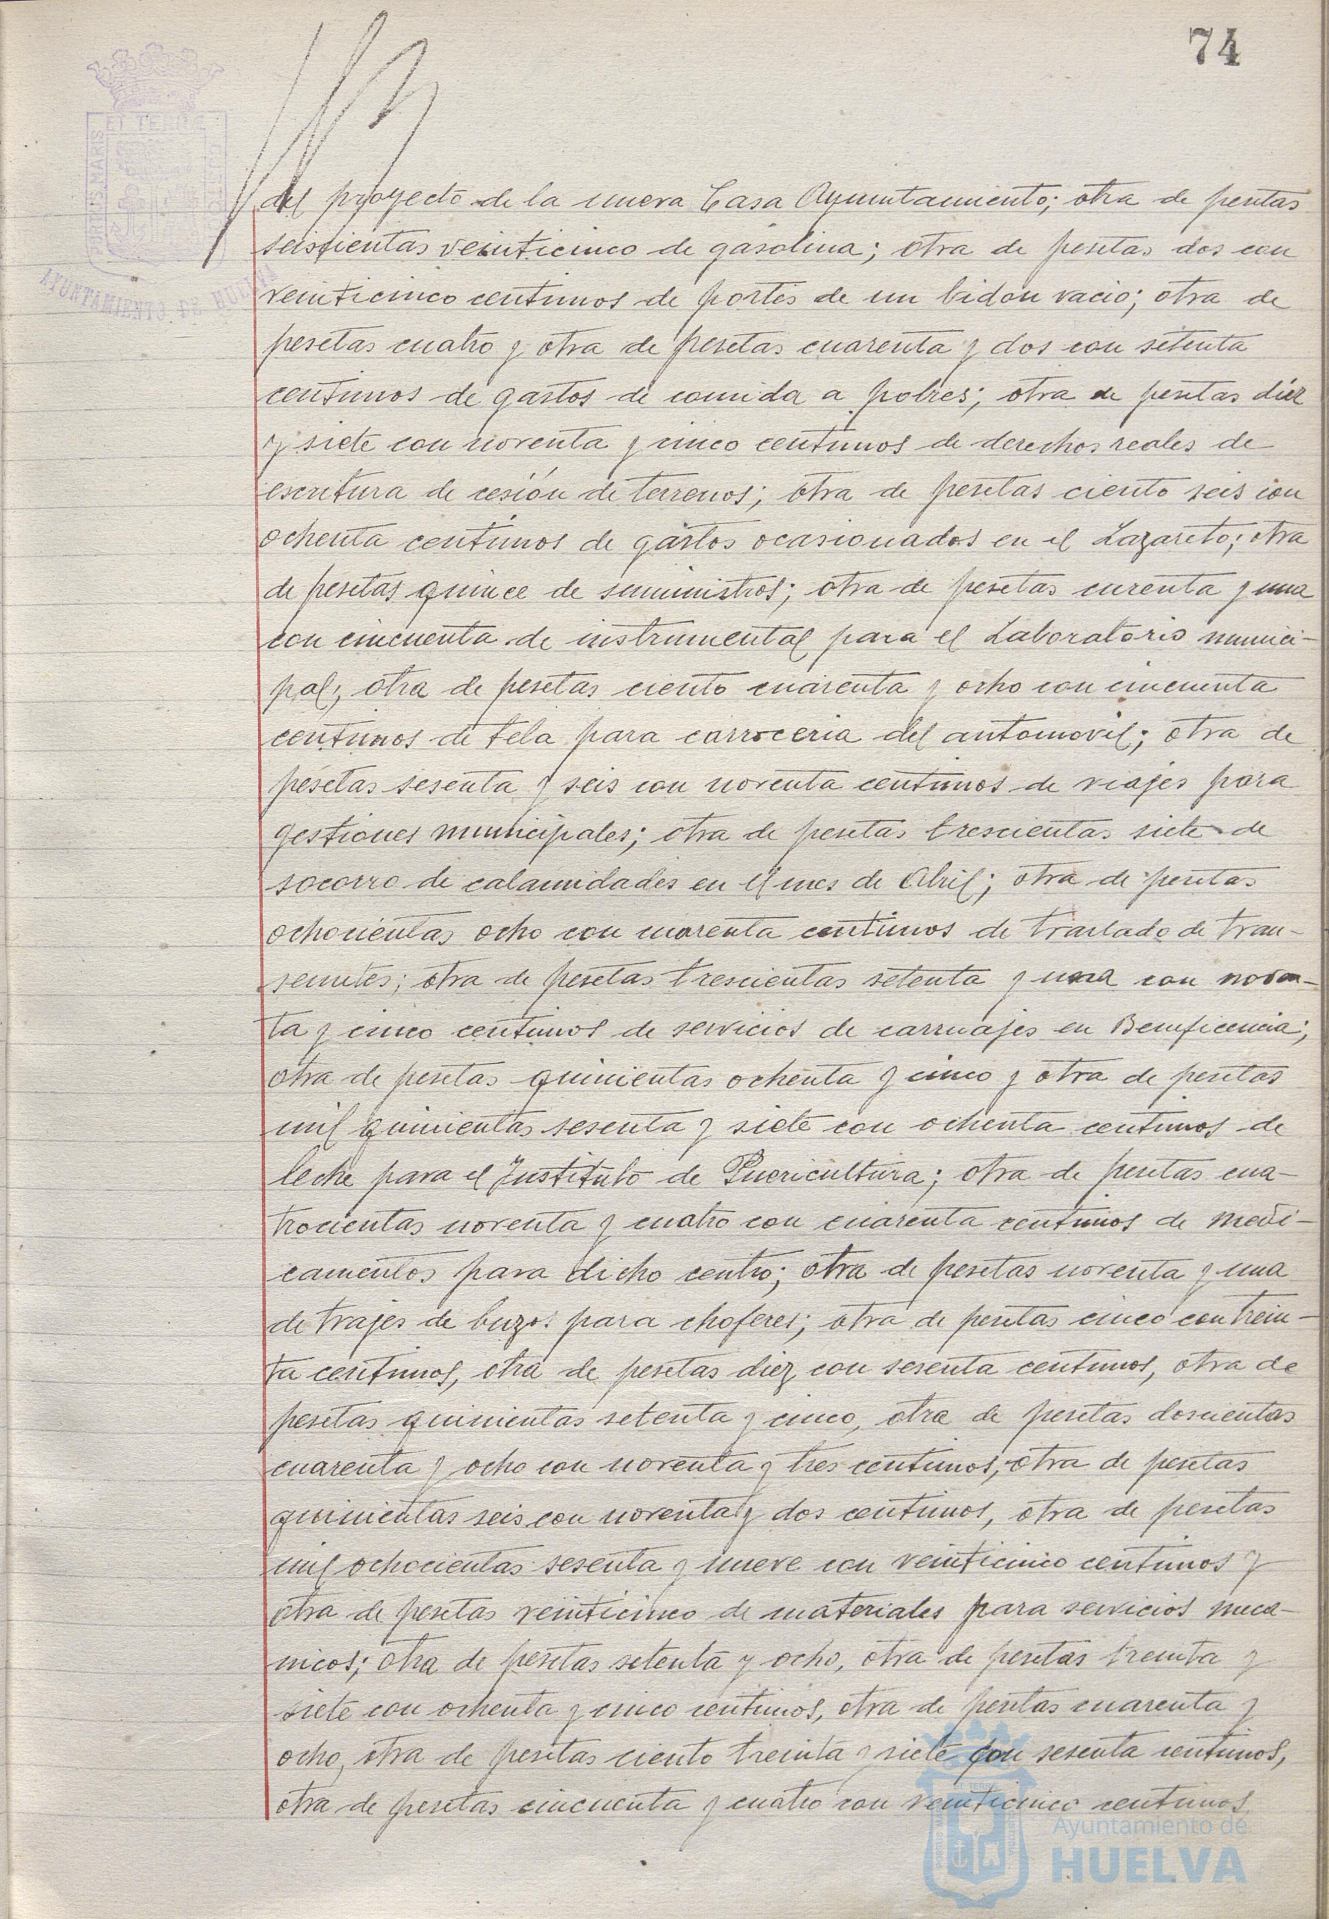 74
PORTUS MARIS ET TERRE CUSTODIA
AYUNTAMIENTO DE HUELVA
del proyecto de la nueva Casa Ayuntamiento; otra de pesetas
seiscientas veinticinco de gasolina; otra de pesetas dos con
veinticinco centimos de portes de un bidon vacio; otra de
pesetas cuatro y otra de pesetas cuarenta y dos con setenta
centimos de gastos de comida a pobres; otra de pesetas diez
y siete con noventa y cinco centimos de derechos reales de
escritura de cesión de terrenos; otra de pesetas ciento seis con
ochenta centimos de gastos ocasionados en el Lazareto; otra
de pesetas quince de suministros; otra de pesetas curenta y una
con cincuenta de instrumental para el Laboratorio munici-
pal; otra de pesetas ciento cuarenta y ocho con cincuenta
centimos de tela para carroceria del automovil; otra de
pesetas sesenta y seis con noventa centimos de viajes para
gestiones municipales; otra de pesetas trescientas siete de
socorro de calamidades en el mes de Abril; otra de pesetas
ochocientas ocho con cuarenta centimos de traslado de tran-
seuntes; otra de pesetas trescientas setenta y una con noven-
ta y cinco centimos de servicios de carruajes en Beneficencia;
otra de pesetas quinientas ochenta y cinco y otra de pesetas
mil quinientas sesenta y siete con ochenta centimos de
leche para el Instituto de Puericultura; otra de pesetas cua-
trocientas noventa y cuatro con cuarenta centimos de medi-
camentos para dicho centro; otra de pesetas noventa y una
de trajes de buzos para choferes; otra de pesetas cinco con trein-
ta centimos, otra de pesetas diez con sesenta centimos, otra de
pesetas quinientas setenta y cinco, otra de pesetas doscientas
cuarenta y ocho con noventa y tres centimos, otra de pesetas
quinientas seis con noventa y dos centimos, otra de pesetas
mil ochocientas sesenta y nueve con veinticinco centimos y
otra de pesetas veinticinco de materiales para servicios meca-
nicos; otra de pesetas setenta y ocho, otra de pesetas treinta y
siete con ochenta y cinco centimos, otra de pesetas cuarenta y
ocho, otra de pesetas ciento treinta y siete con sesenta centimos,
otra de pesetas cincuenta y cuatro con veinticinco centimos
Ayuntamiento de
HUELVA